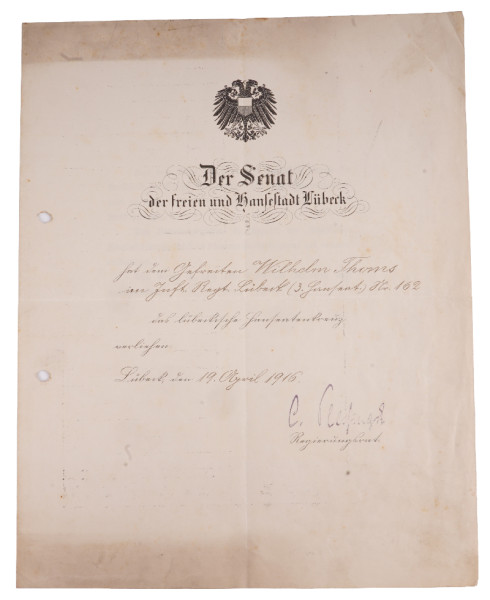 Der Senat
der freien und Hansestadt Lübeck
hat dem Gefreiten Wilhelm Thoms
im Inft. Regt. Lübeck (3. Hanseat.) Nr. 162
das lübeckische Hanseatenkreuz
verliehen.
Lübeck, den 19. April 1916.
C.
Regierungsrat.